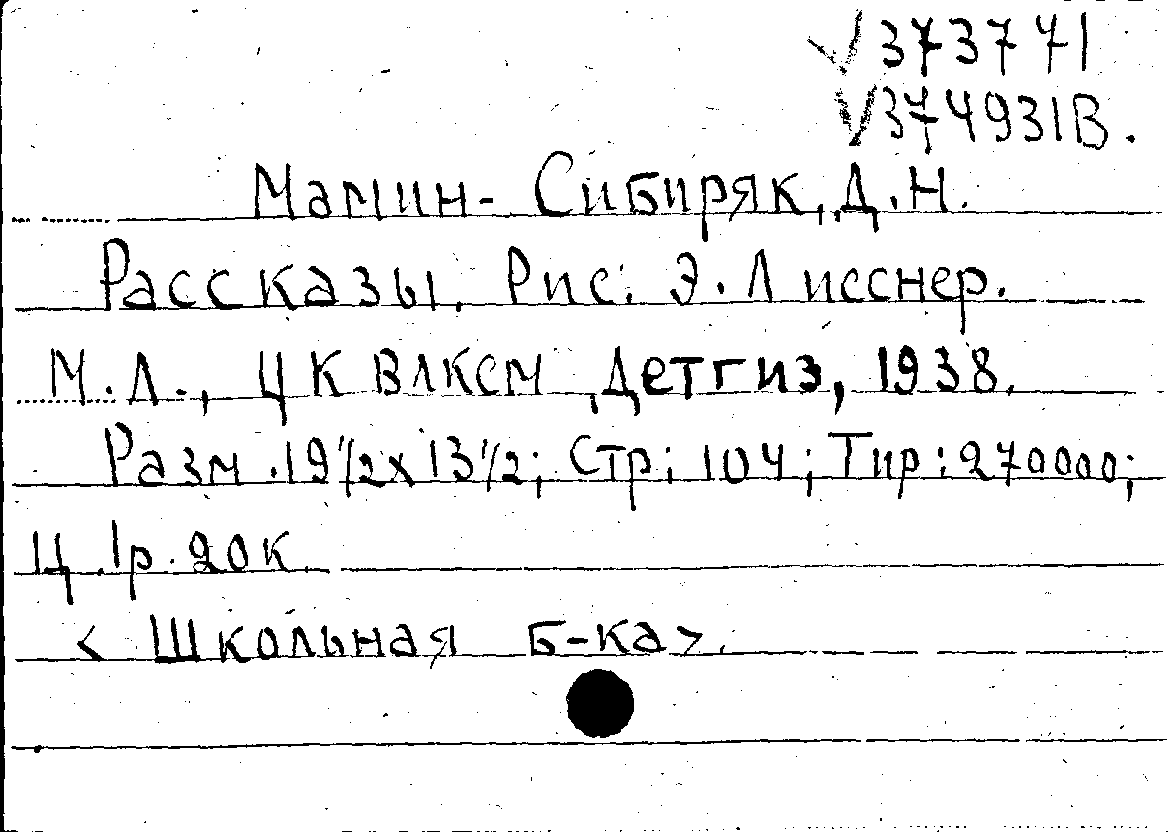 √373771
√374931В.
Мамин-Сибиряк, Д.Н.
Рассказы. Рис: Э. Лисснер.
М.Л., ЦК ВЛКСМ, Детгиз, 1938.
Разм. 19 1/2 х 13 1/2; Стр: 104; Тир: 270000;
Ц. 1р. 20к
< Школьная б-ка>.